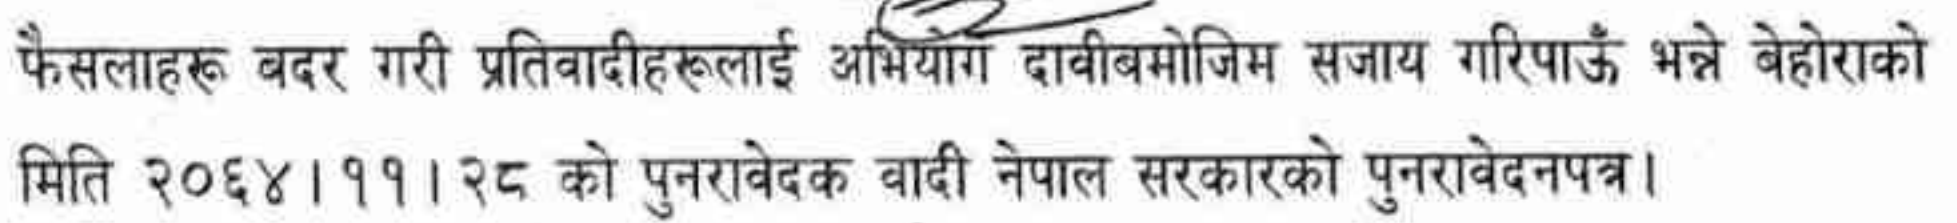 फैसलाहरू बदर गरी प्रतिवादीहरूलाई अभियोग दावीबमोजिम सजाय गरिपाऊँ भन्ने बेहोराको
मिति २०६४।११।२८ को पुनरावेदक वादी नेपाल सरकारको पुनरावेदनपत्र।